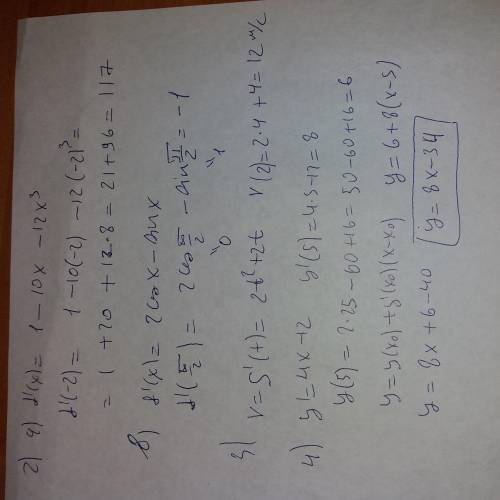 2) a) f'(x) = 1 - 10x - 12x³
f'(-2) = 1 - 10(-2) - 12(-2)³ =
= 1 + 20 + 12·8 = 21 + 96 = 117
в) f'(x) = 2cosx - sinx
f'(π/2) = 2cos π/2 - sin π/2 = -1
"0 "1
3) v = S'(t) = 2t² + 2t v(2) = 2·4 + 4 = 12 м/с
4) y' = 4x - 12 y'(5) = 4·5 - 12 = 8
y(5) = 2·25 - 60 + 16 = 50 - 60 + 16 = 6
y = y(x₀) + y'(x₀)(x - x₀) y = 6 + 8(x - 5)
y = 8x + 6 - 40 y = 8x - 34